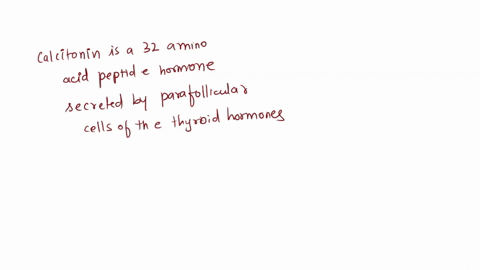 Calcitonin is a 32 amino
acid peptide hormone
secreted by parafollicular
cells of the thyroid hormones